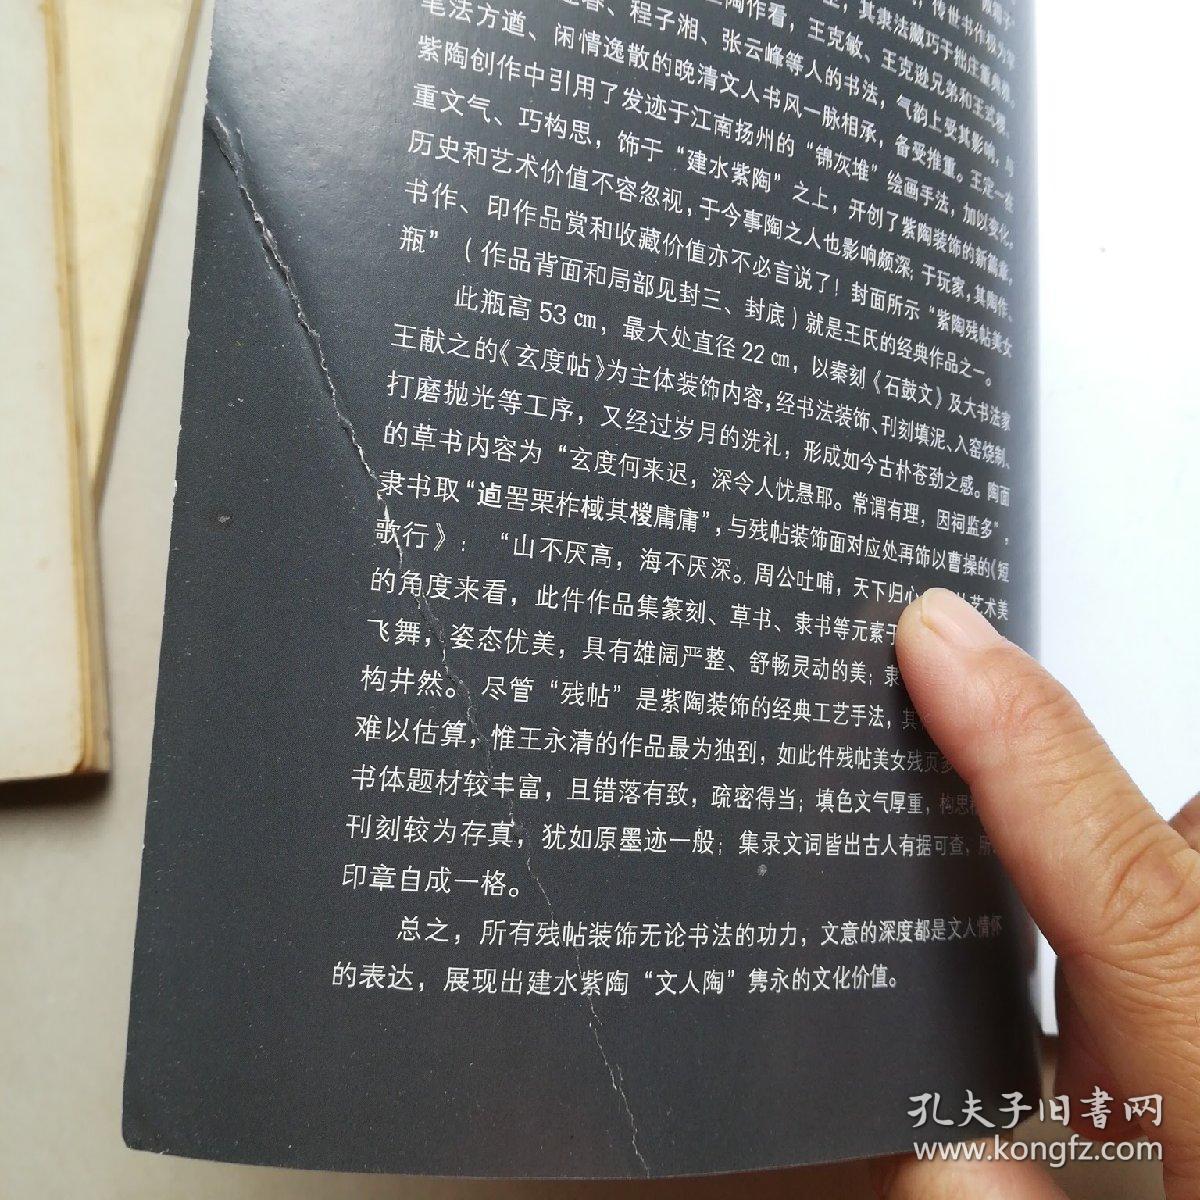 传世书作极为罕
陶作看，王克敏、王克逊兄弟和王式稷，
程子湘、张云峰等人的书法，气韵上受其影响，与
笔法方道、闲情逸散的晚清文人书风一脉相承，备受推重。王定一在
紫陶创作中引用了发迹于江南扬州的“锦灰堆”绘画手法，加以变化，
重文气、巧构思，饰于“建水紫陶”之上，开创了紫陶装饰的新篇章，
历史和艺术价值不容忽视，于今事陶之人也影响颇深；于玩家，其陶作、
书作、印作品赏和收藏价值亦不必言说了！封面所示“紫陶残帖美女
瓶”（作品背面和局部见封三、封底）就是王氏的经典作品之一。
此瓶高53cm，最大处直径22cm，以秦刻《石鼓文》及大书法家
王献之的《玄度帖》为主体装饰内容，经书法装饰、刊刻填泥、入窑烧制、
打磨抛光等工序，又经过岁月的洗礼，形成如今古朴苍劲之感。陶面
的草书内容为“玄度何来迟，深令人忧悬耶。常谓有理，因祠监多”，
隶书取“逌罟栗柞棫其椶庸庸”，与残帖装饰面对应处再饰以曹操的《短
歌行》：“山不厌高，海不厌深。周公吐哺，天下归心 艺术美
的角度来看，此件作品集篆刻、草书、隶书等元素于
飞舞，姿态优美，具有雄阔严整、舒畅灵动的美；隶
构井然。尽管“残帖”是紫陶装饰的经典工艺手法，其
难以估算，惟王永清的作品最为独到，如此件残帖美女残页多
书体题材较丰富，且错落有致，疏密得当；填色文气厚重，构思
刊刻较为存真，犹如原墨迹一般；集录文词皆出古人有据可查，所
印章自成一格。
总之，所有残帖装饰无论书法的功力，文意的深度都是文人情怀
的表达，展现出建水紫陶“文人陶”隽永的文化价值。
孔夫子旧书网
www.kongfz.com